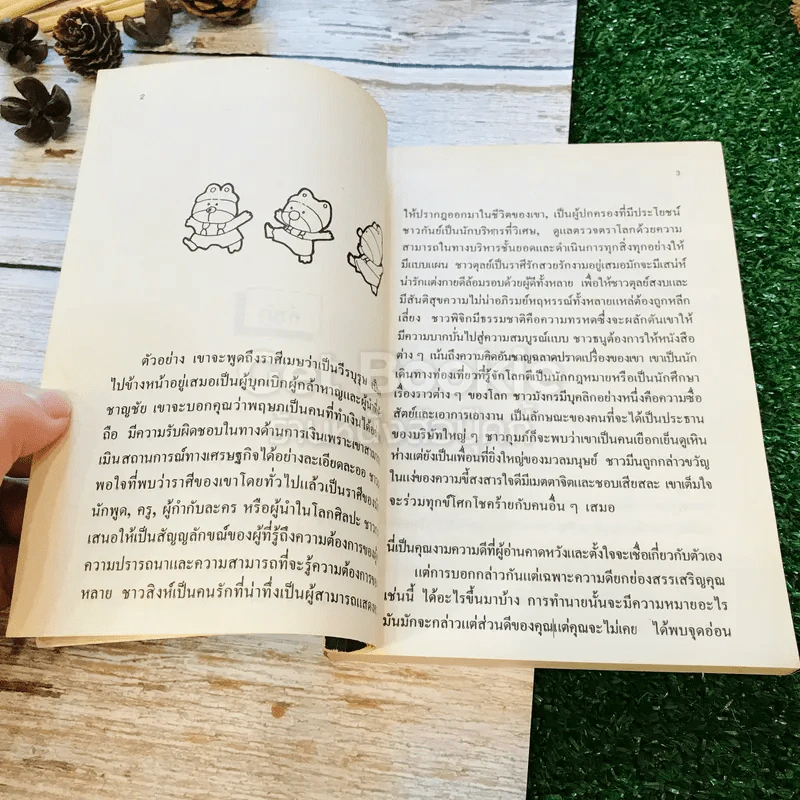 2
ตัวอย่าง เขาจะพูดถึงราศีเมษว่าเป็นวีรบุรุษ
ไปข้างหน้าอยู่เสมอเป็นผู้บุกเบิกผู้กล้าหาญและผู้นำ
ชาญชัย เขาจะบอกคุณว่าพฤษภเป็นคนที่ทำเงินได้
ถือ มีความรับผิดชอบในทางด้านการเงินเพราะเขาสามา
เมินสถานการณ์ทางเศรษฐกิจได้อย่างละเอียดละออ
พอใจที่พบว่าราศีของเขาโดยทั่วไปแล้วเป็นราศีของ
นักพูด, ครู, ผู้กำกับละคร หรือผู้นำในโลกศิลปะ ชาว
เสนอให้เป็นสัญญลักขณ์ของผู้ที่รู้ถึงความต้องการของ
ความปรารถนาและความสามารถที่จะรู้ความต้องการของ
หลาย ชาวสิงห์เป็นคนรักที่น่าทึ่งเป็นผู้สามารถแสดง
3
ให้ปรากฎออกมาในชีวิตของเขา, เป็นผู้ปกครองที่มีประโยชน์
ชาวกันย์เป็นนักบริหารที่วิเศษ, ดูแลตรวจตราโลกด้วยความ
สามารถในทางบริหารชั้นยอดและดำเนินการทุกสิ่งทุกอย่างให้
มีแบบแผน ชาวตุลย์เป็นราศีรักสวยรักงามอยู่เสมอมักจะมีเสน่ห์
น่ารักแต่งกายดีล้อมรอบด้วยผู้ดีทั้งหลาย เพื่อให้ชาวตุลย์สงบและ
มีสันติสุขความไม่น่าอภิรมย์หฤหรรณ์ทั้งหลายแหล่ต้องถูกหลีก
เลี่ยง ชาวพิจิกมีธรรมชาติคือความทรหดซึ่งจะผลักดันเขาให้
มีความบากบั่นไปสู่ความสมบูรณ์แบบ ชาวธนูต้องการให้หนังสือ
ต่าง ๆ เน้นถึงความคิดอันชาญฉลาดปราดเปรื่องของเขา เขาเป็นนัก
เดินทางท่องเที่ยวที่รู้จักโลกดีเป็นนักกฎหมายหรือเป็นนักศึกษา
เรื่องราวต่าง ๆ ของโลก ชาวมังกรมีบุคลิกอย่างหนึ่งคือความซื่อ
สัตย์และเอาการเอางาน เป็นลักษณะของคนที่จะได้เป็นประธาน
ของบริษัทใหญ่ ๆ ชาวกุมภ์ก็จะพบว่าเขาเป็นคนเยือกเย็นดูเหิน
ห่างแต่ยังเป็นเพื่อนที่ยิ่งใหญ่ของมวลมนุษย์ ชาวมีนถูกกล่าวขวัญ
ในแง่ของความขี้สงสารใจดีมีเมตตาจิตและชอบเสียสละ เขาเต็มใจ
จะร่วมทุกข์โศกโชคร้ายกับคนอื่น ๆ เสมอ
นี่เป็นคุณงามความดีที่ผู้อ่านคาดหวังและตั้งใจจะเชื่อเกี่ยวกับตัวเอง
แต่การบอกกล่าวกันแต่เฉพาะความดียกย่องสรรเสริญคุณ
เช่นนี้ ได้อะไรขึ้นมาบ้าง การทำนายนั้นจะมีความหมายอะไร
มันมักจะกล่าวแต่ส่วนดีของคุณแต่คุณจะไม่เคย ได้พบจุดอ่อน